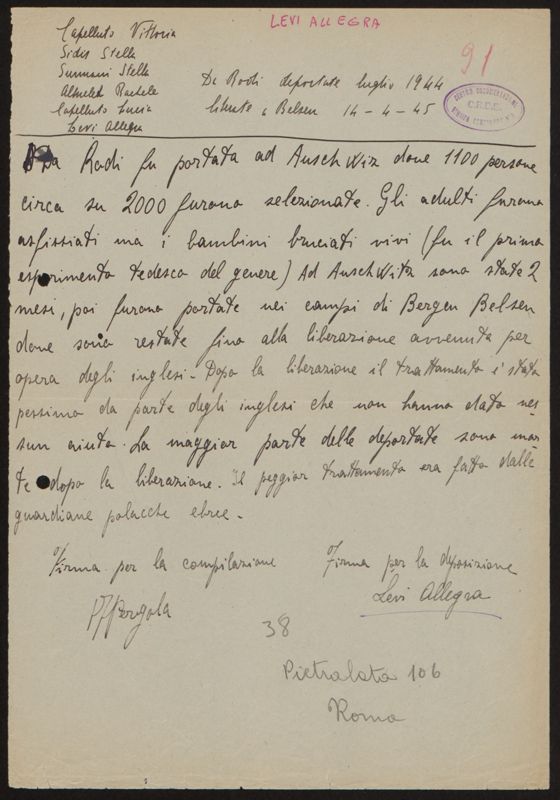 LEVI ALLEGRA
91
Capelluto Vittoria
Sides Stella
Surmani Stella
Alhadef Rachele
Capelluto Lucia
Levi Allegra
Da Rodi deportate luglio 1944
liberate a Belsen 14-4-45
C.R.D.E.
Da Rodi fu portata ad Auschwiz dove 1100 persone
circa su 2000 furono selezionate. Gli adulti furono
asfissiati ma i bambini bruciati vivi (fu il primo
esperimento tedesco del genere) Ad Auschwitz sono state 2
mesi, poi furono portate nei campi di Bergen Belsen
dove sono restate fino alla liberazione avvenuta per
opera degli inglesi - Dopo la liberazione il trattamento è stato
pessimo da parte degli inglesi che non hanno dato nes
sun aiuto. La maggior parte delle deportate sono mor
te dopo la liberazione. Il peggior trattamento era fatto dalle
guardiane polacche ebree -
Firma per la compilazione
Firma per la deposizione
Levi Allegra
38
Pietralata 106
Roma